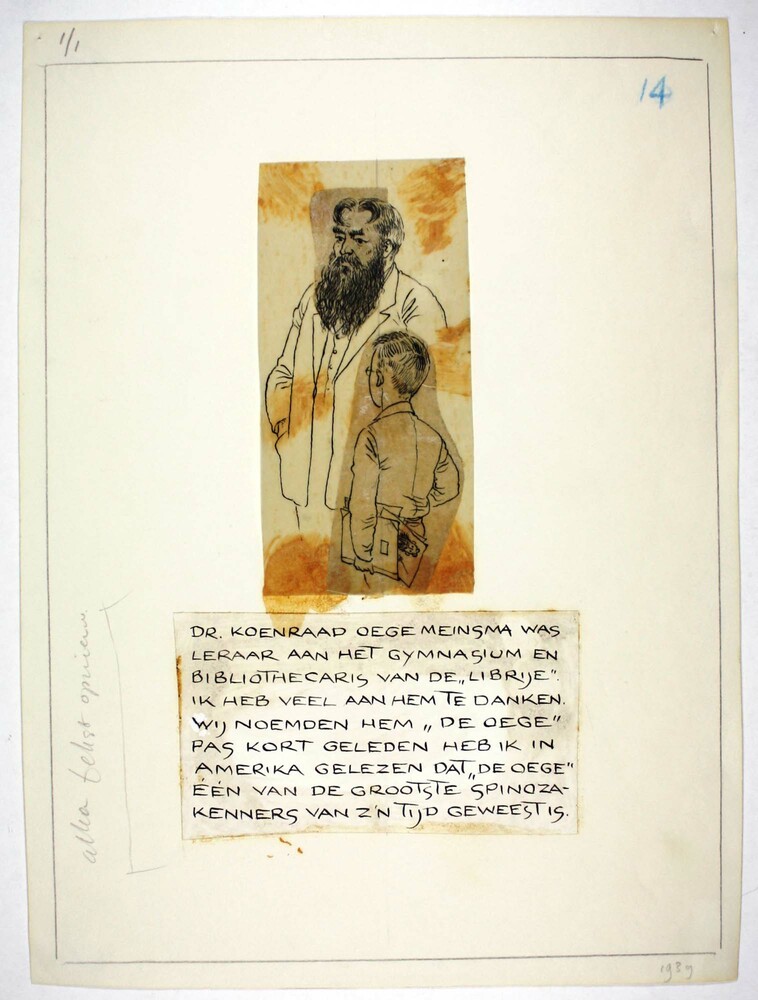 1/1
14
DR. KOENRAAD OEGE MEINSMA WAS
LERAAR AAN HET GYMNASIUM EN
BIBLIOTHECARIS VAN DE „LIBRIJE".
IK HEB VEEL AAN HEM TE DANKEN.
WIJ NOEMDEN HEM „DE OEGE"
PAS KORT GELEDEN HEB IK IN
AMERIKA GELEZEN DAT „DE OEGE"
ÉÉN VAN DE GROOTSTE SPINOZA-
KENNERS VAN Z'N TIJD GEWEEST IS.
tekst opnieuw
1939